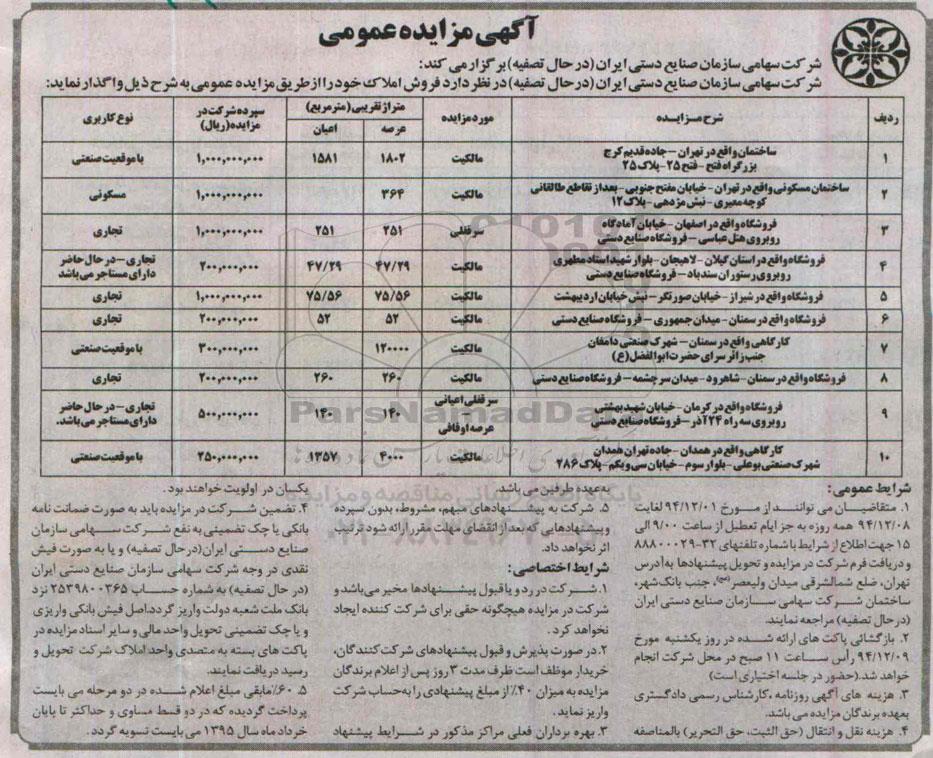 آگهی مزایده عمومی
شرکت سهامی سازمان صنایع دستی ایران (در حال تصفیه) برگزار می کند:
شرکت سهامی سازمان صنایع دستی ایران (در حال تصفیه) در نظر دارد فروش املاک خود را از طریق مزایده عمومی به شرح ذیل واگذار نماید:
ردیف شرح مزایده مورد مزایده متراژ تقریبی (مترمربع) عرصه اعیان سپرده شرکت در مزایده (ریال) نوع کاربری
۱ ساختمان واقع در تهران – جاده قدیم کرج مالکیت ۱۸۰۲ ۱۵۸۱ ۱,۰۰۰,۰۰۰,۰۰۰ با موقعیت صنعتی
بزرگراه فتح - فتح ۲۵ - پلاک ۲۵
۲ ساختمان مسکونی واقع در تهران - خیابان مفتح جنوبی - بعد از تقاطع طالقانی مالکیت ۳۶۴ ۱,۰۰۰,۰۰۰,۰۰۰ مسکونی
کوچه معیری - نبش مژدهی - پلاک ۱۲
۳ فروشگاه واقع در اصفهان - خیابان آمادگاه سرقفلی ۲۵۱ ۲۵۱ ۱,۰۰۰,۰۰۰,۰۰۰ تجاری
روبروی هتل عباسی – فروشگاه صنایع دستی
۴ فروشگاه واقع در استان گیلان - لاهیجان - بلوار شهید استاد مطهری مالکیت ۴۷/۲۹ ۴۷/۲۹ ۲۰۰,۰۰۰,۰۰۰ تجاری – در حال حاضر
روبروی رستوران سندباد – فروشگاه صنایع دستی دارای مستاجر می باشد
۵ فروشگاه واقع در شیراز - خیابان صورتگر – نبش خیابان اردیبهشت مالکیت ۷۵/۵۶ ۷۵/۵۶ ۱,۰۰۰,۰۰۰,۰۰۰ تجاری
۶ فروشگاه واقع در سمنان - میدان جمهوری – فروشگاه صنایع دستی مالکیت ۵۲ ۵۲ ۲۰۰,۰۰۰,۰۰۰ تجاری
۷ کارگاهی واقع در سمنان – شهرک صنعتی دامغان مالکیت ۱۲۰۰۰۰ ۳۰۰,۰۰۰,۰۰۰ با موقعیت صنعتی
جنب زائر سرای حضرت ابوالفضل (ع)
۸ فروشگاه واقع در سمنان - شاهرود - میدان سرچشمه – فروشگاه صنایع دستی مالکیت ۲۶۰ ۲۶۰ ۲۰۰,۰۰۰,۰۰۰ تجاری
۹ فروشگاه واقع در کرمان - خیابان شهید بهشتی سرقفلی اعیانی ۱۴۰ ۱۴۰ ۵۰۰,۰۰۰,۰۰۰ تجاری – در حال حاضر
روبروی سه راه ۲۲۴ آذر – فروشگاه صنایع دستی عرصه اوقافی دارای مستاجر می باشد.
۱۰ کارگاهی واقع در همدان - جاده تهران همدان مالکیت ۴۰۰۰ ۱۳۵۷ ۲۵۰,۰۰۰,۰۰۰ با موقعیت صنعتی
شهرک صنعتی بوعلی - بلوار سوم - خیابان سی و یکم - پلاک ۲۸۶
شرایط عمومی:
۱. متقاضیان می توانند از مورخ ۹۴/۱۲/۰۱ لغایت
۹۴/۱۲/۰۸ همه روزه به جز ایام تعطیل از ساعت ۹/۰۰ الی
۱۵ جهت اطلاع از شرایط با شماره تلفنهای ۳۲-۸۸۸۰۰۰۲۹
و دریافت فرم شرکت در مزایده و تحویل پیشنهادها به آدرس
تهران، ضلع شمالشرقی میدان ولیعصر (عج)، جنب بانک شهر،
ساختمان شرکت سهامی سازمان صنایع دستی ایران
(در حال تصفیه) مراجعه نمایند.
۲. بازگشائی پاکت های ارائه شده در روز یکشنبه مورخ
۹۴/۱۲/۰۹ رأس ساعت ۱۱ صبح در محل شرکت انجام
خواهد شد. (حضور در جلسه اختیاری است)
۳. هزینه های آگهی روزنامه، کارشناس رسمی دادگستری
بعهده برندگان مزایده می باشد.
۴. هزینه نقل و انتقال (حق الثبت، حق التحریر) بالمناصفه
به عهده طرفین می باشد.
۵. شرکت به پیشنهادهای مبهم، مشروط، بدون سپرده
و پیشنهادهایی که بعد از انقضای مهلت مقرر ارائه شود ترتیب
اثر نخواهد داد.
شرایط اختصاصی:
۱. شرکت در رد و یا قبول پیشنهادها مخیر می باشد و
شرکت در مزایده هیچگونه حقی برای شرکت کننده ایجاد
نخواهد کرد.
۲. در صورت پذیرش و قبول پیشنهادهای شرکت کنندگان،
خریدار موظف است ظرف مدت ۳ روز پس از اعلام برندگان
مزایده به میزان ۴۰٪ از مبلغ پیشنهادی را به حساب شرکت
واریز نماید.
۳. بهره برداران فعلی مراکز مذکور در شرایط پیشنهاد
یکسان در اولویت خواهند بود.
۴. تضمین شرکت در مزایده باید به صورت ضمانت نامه
بانکی یا چک تضمینی به نفع شرکت سهامی سازمان
صنایع دستی ایران (در حال تصفیه) و یا به صورت فیش
نقدی در وجه شرکت سهامی سازمان صنایع دستی ایران
(در حال تصفیه) به شماره حساب ۲۵۳۹۸۰۰۳۶۵ نزد
بانک ملت شعبه دولت واریز گردد. اصل فیش بانکی واریزی
و یا چک تضمینی تحویل واحد مالی و سایر اسناد مزایده در
پاکت های بسته به متصدی واحد املاک شرکت تحویل و
رسید دریافت نمایند.
۵. ۶۰٪ مابقی مبلغ اعلام شده در دو مرحله می بایست
پرداخت گردیده که در دو قسط مساوی و حداکثر تا پایان
خرداد ماه سال ۱۳۹۵ می بایست تسویه گردد.
ParsNamadData